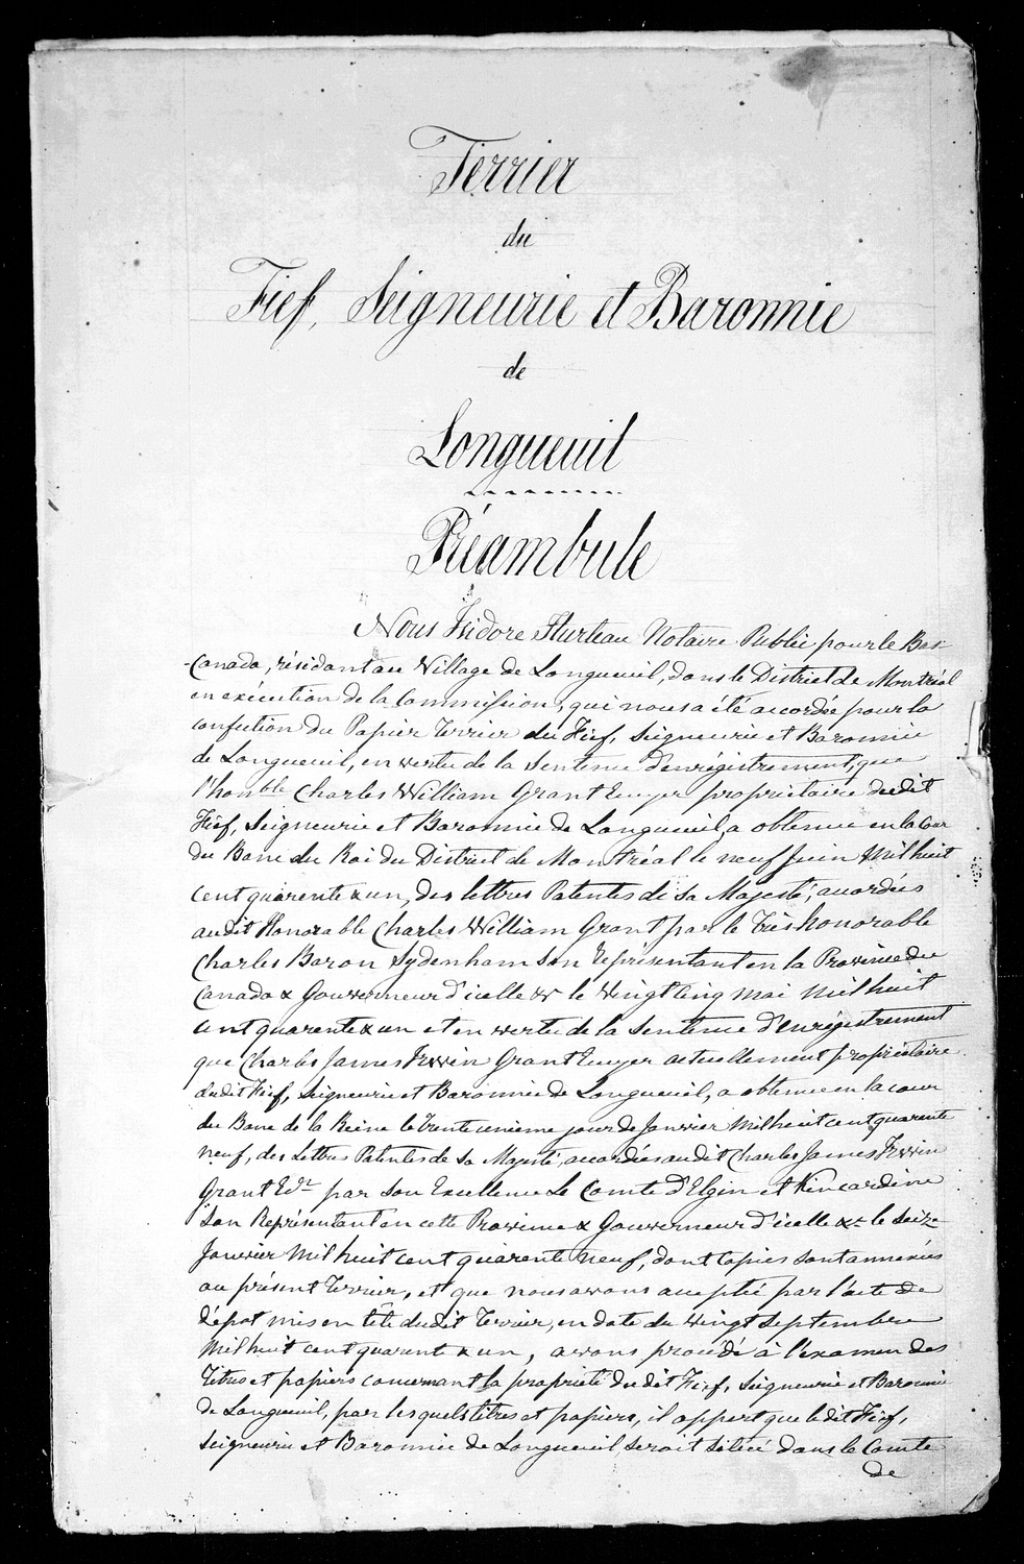 Terrier
du
Fief, Seigneurie et Baronnie
de
Longueuil
Préambule
Nous Isidore Hurteau Notaire Public pour le Bas-
-Canada, résidant au Village de Longueuil, dans le District de Montréal
en exécution de la Commission, qui nous a été accordée pour la
confection du Papier Terrier du Fief, Seigneurie et Baronnie
de Longueuil, en vertu de la Sentence d'enrégistrement, que
l'honble Charles William Grant Ecuyer propriétaire dudit
Fief, Seigneurie et Baronnie de Longueuil, a obtenue en la Cour
du Banc du Roi du District de Montréal le neuf Juin Mil huit
cent quarente & un, des lettres Patentes de Sa Majesté, accordées
audit Honorable Charles William Grant par le Très honorable
Charles Baron Sydenham Son représentant en la Province du
Canada & Gouverneur d'icelle &c le Vingt Cinq Mai Mil huit
cent quarente & un et en vertu de la Sentence d'enrégistrement
que Charles James Irwin Grant Ecuyer actuellement propriétaire
dudit Fief, Seigneurie et Baronnie de Longueuil, a obtenue en la cour
du Banc de la Reine le trente unieme jour de Janvier Mil huit cent quarente
neuf, des Lettres Patentes de Sa Majesté, accordées audit Charles James Irwin
Grant Ecr par Son Excellence Le Comte d'Elgin et Kincardine
Son Représentant en cette Province & Gouverneur d'icelle &c le Seize
Janvier Mil huit cent quarente neuf, dont Copies sont annexées
au présent Terrier, et que nous avons accepté par l'acte de
dépot mis en tête dudit Terrier, en date du Vingt Septembre
Mil huit cent quarente & un, avons procédé à l'examen des
Titres et papiers concernant la propriété dudit Fief, Seigneurie et Baronnie
de Longueuil, par lesquels titres et papiers, il appert que ledit Fief,
Seigneurie et Baronnie de Longueuil serait Située dans le Comté
de